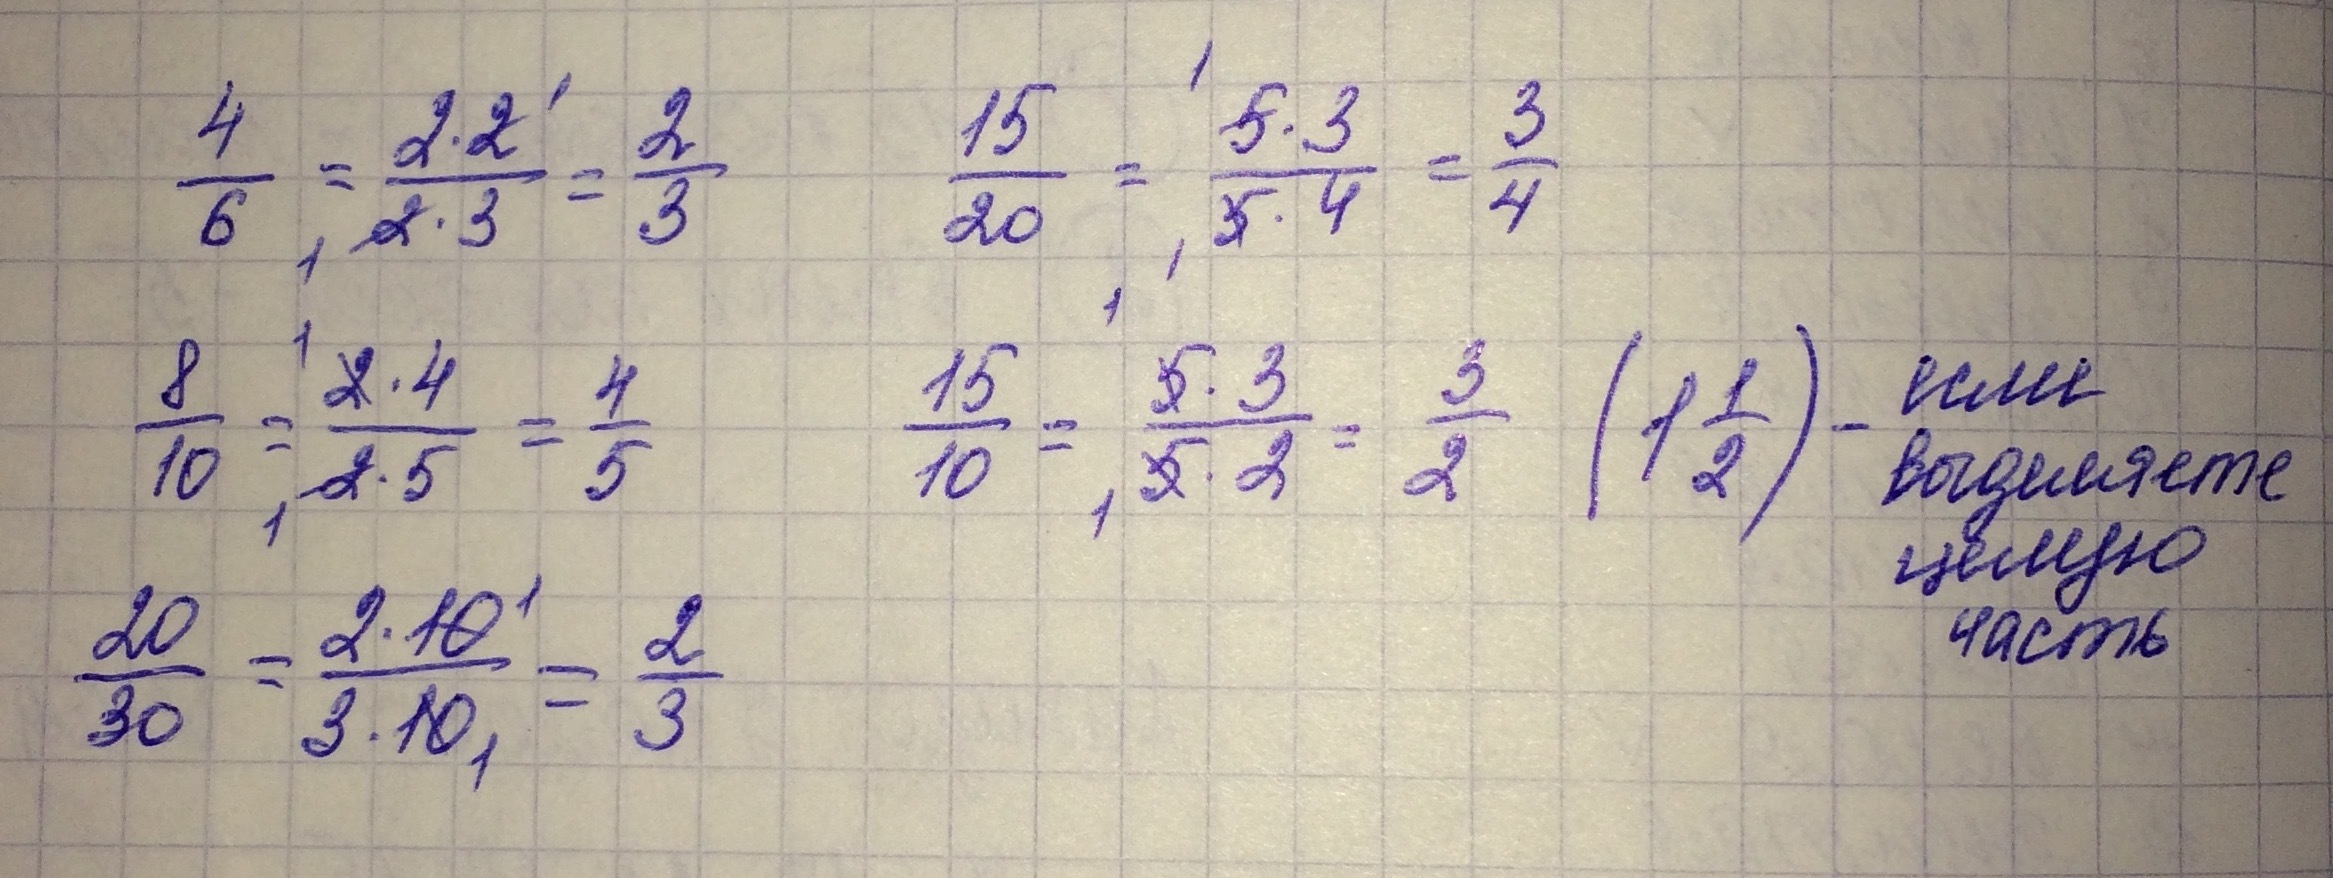 4/6 = 2·2¹/₁2·3 = 2/3    15/20 = ¹5·3/₁5·4 = 3/4
8/10 = ¹2·4/₁2·5 = 4/5    15/10 = ¹5·3/₁5·2 = 3/2 (1 1/2) - если
выделяете
целую
часть
20/30 = 2·10¹/3·10₁ = 2/3